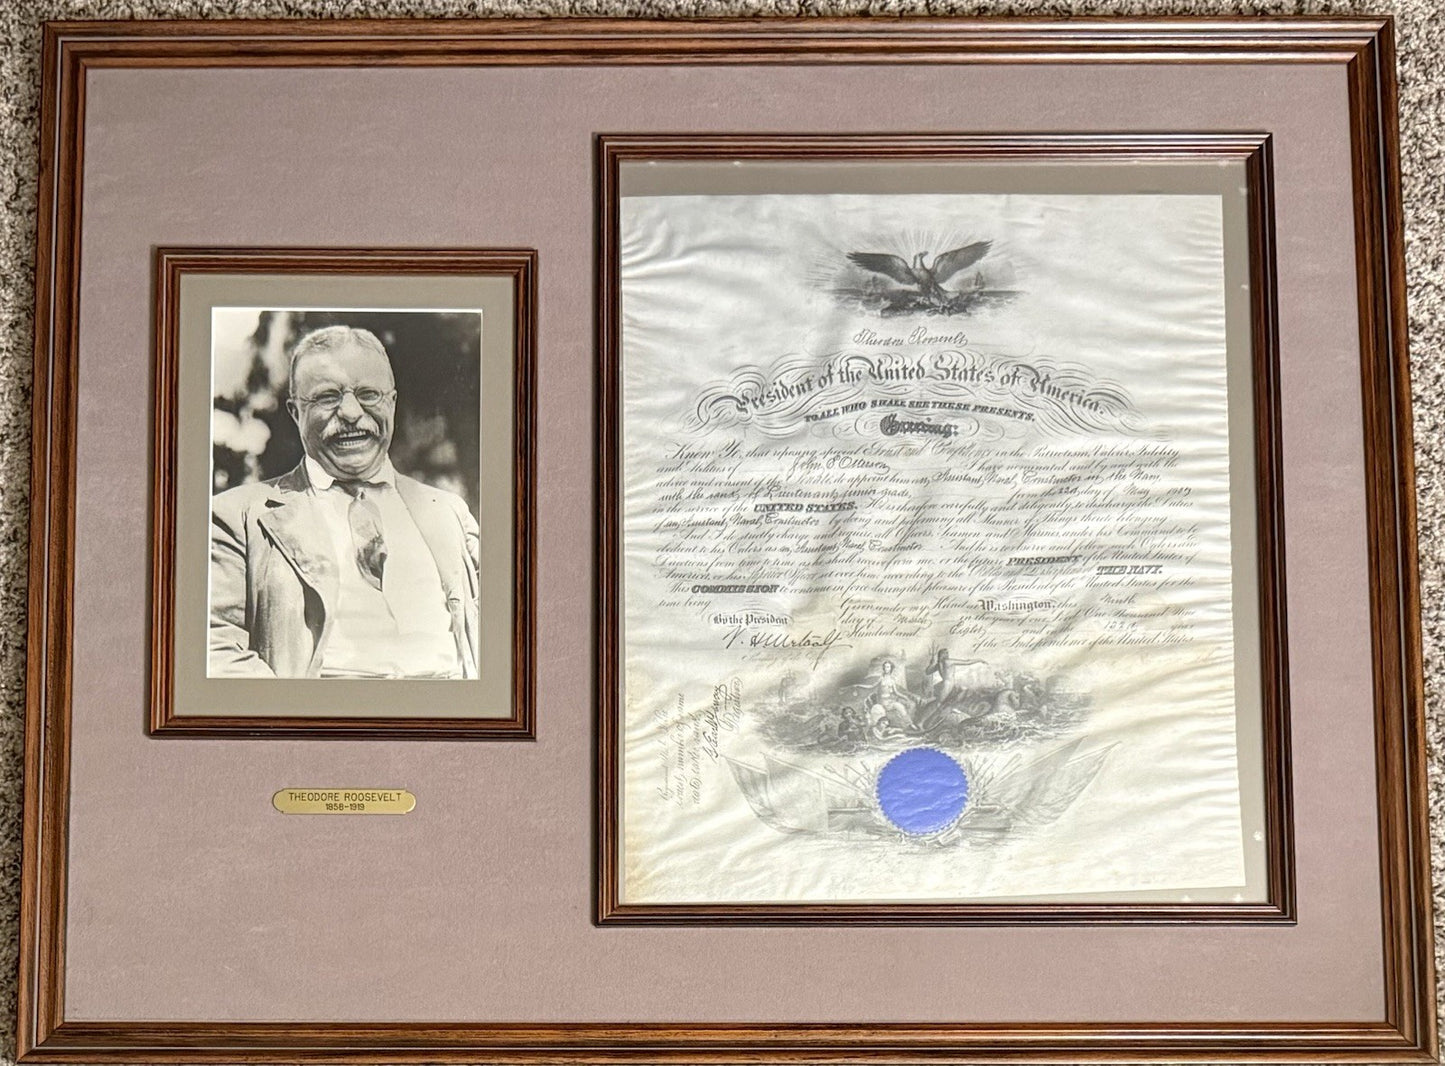 THEODORE ROOSEVELT
1858-1919
Theodore Roosevelt
President of the United States of America.
TO ALL WHO SHALL SEE THESE PRESENTS,
Greeting:
Know Ye, that reposing special Trust and Confidence in the Patriotism, Valour, Fidelity
and Abilities of John E Otterson I have nominated and by and with the
advice and consent of the Senate, do appoint him an Assistant Naval Constructor in the Navy,
with the rank of Lieutenant, junior grade, from the day of
in the service of the UNITED STATES. He is therefore carefully and diligently to discharge the Duties
of an Assistant Naval Constructor by doing and performing all Manner of Things thereto belonging.
And I do strictly charge and require all Officers, Seamen and Marines, under his Command to be
obedient to his Orders as an Assistant Naval Constructor And he is to observe and follow such Orders and
Directions from time to time as he shall receive from me, or the future PRESIDENT of the United States of
America, or his Superior Officer set over him, according to the THE NAVY.
This COMMISSION to continue in force during the pleasure of the President of the United States for the
time being.
Given under my Hand at Washington, this
By the President day of March in the year of our Lord One Thousand Nine
V. H. Metcalf Hundred and Eight and in the year
Secretary of the Navy of the Independence of the United States
Registered